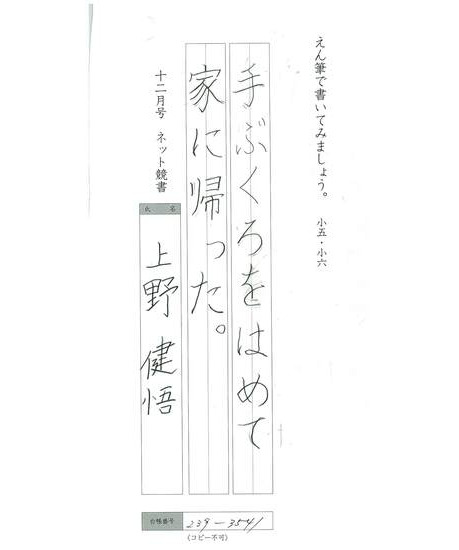 えん筆で書いてみましょう。 小五・小六
手ぶくろをはめて
家に帰った。
十二月号 ネット競書
氏名
上野 健悟
台帳番号 239-3541
(コピー不可)